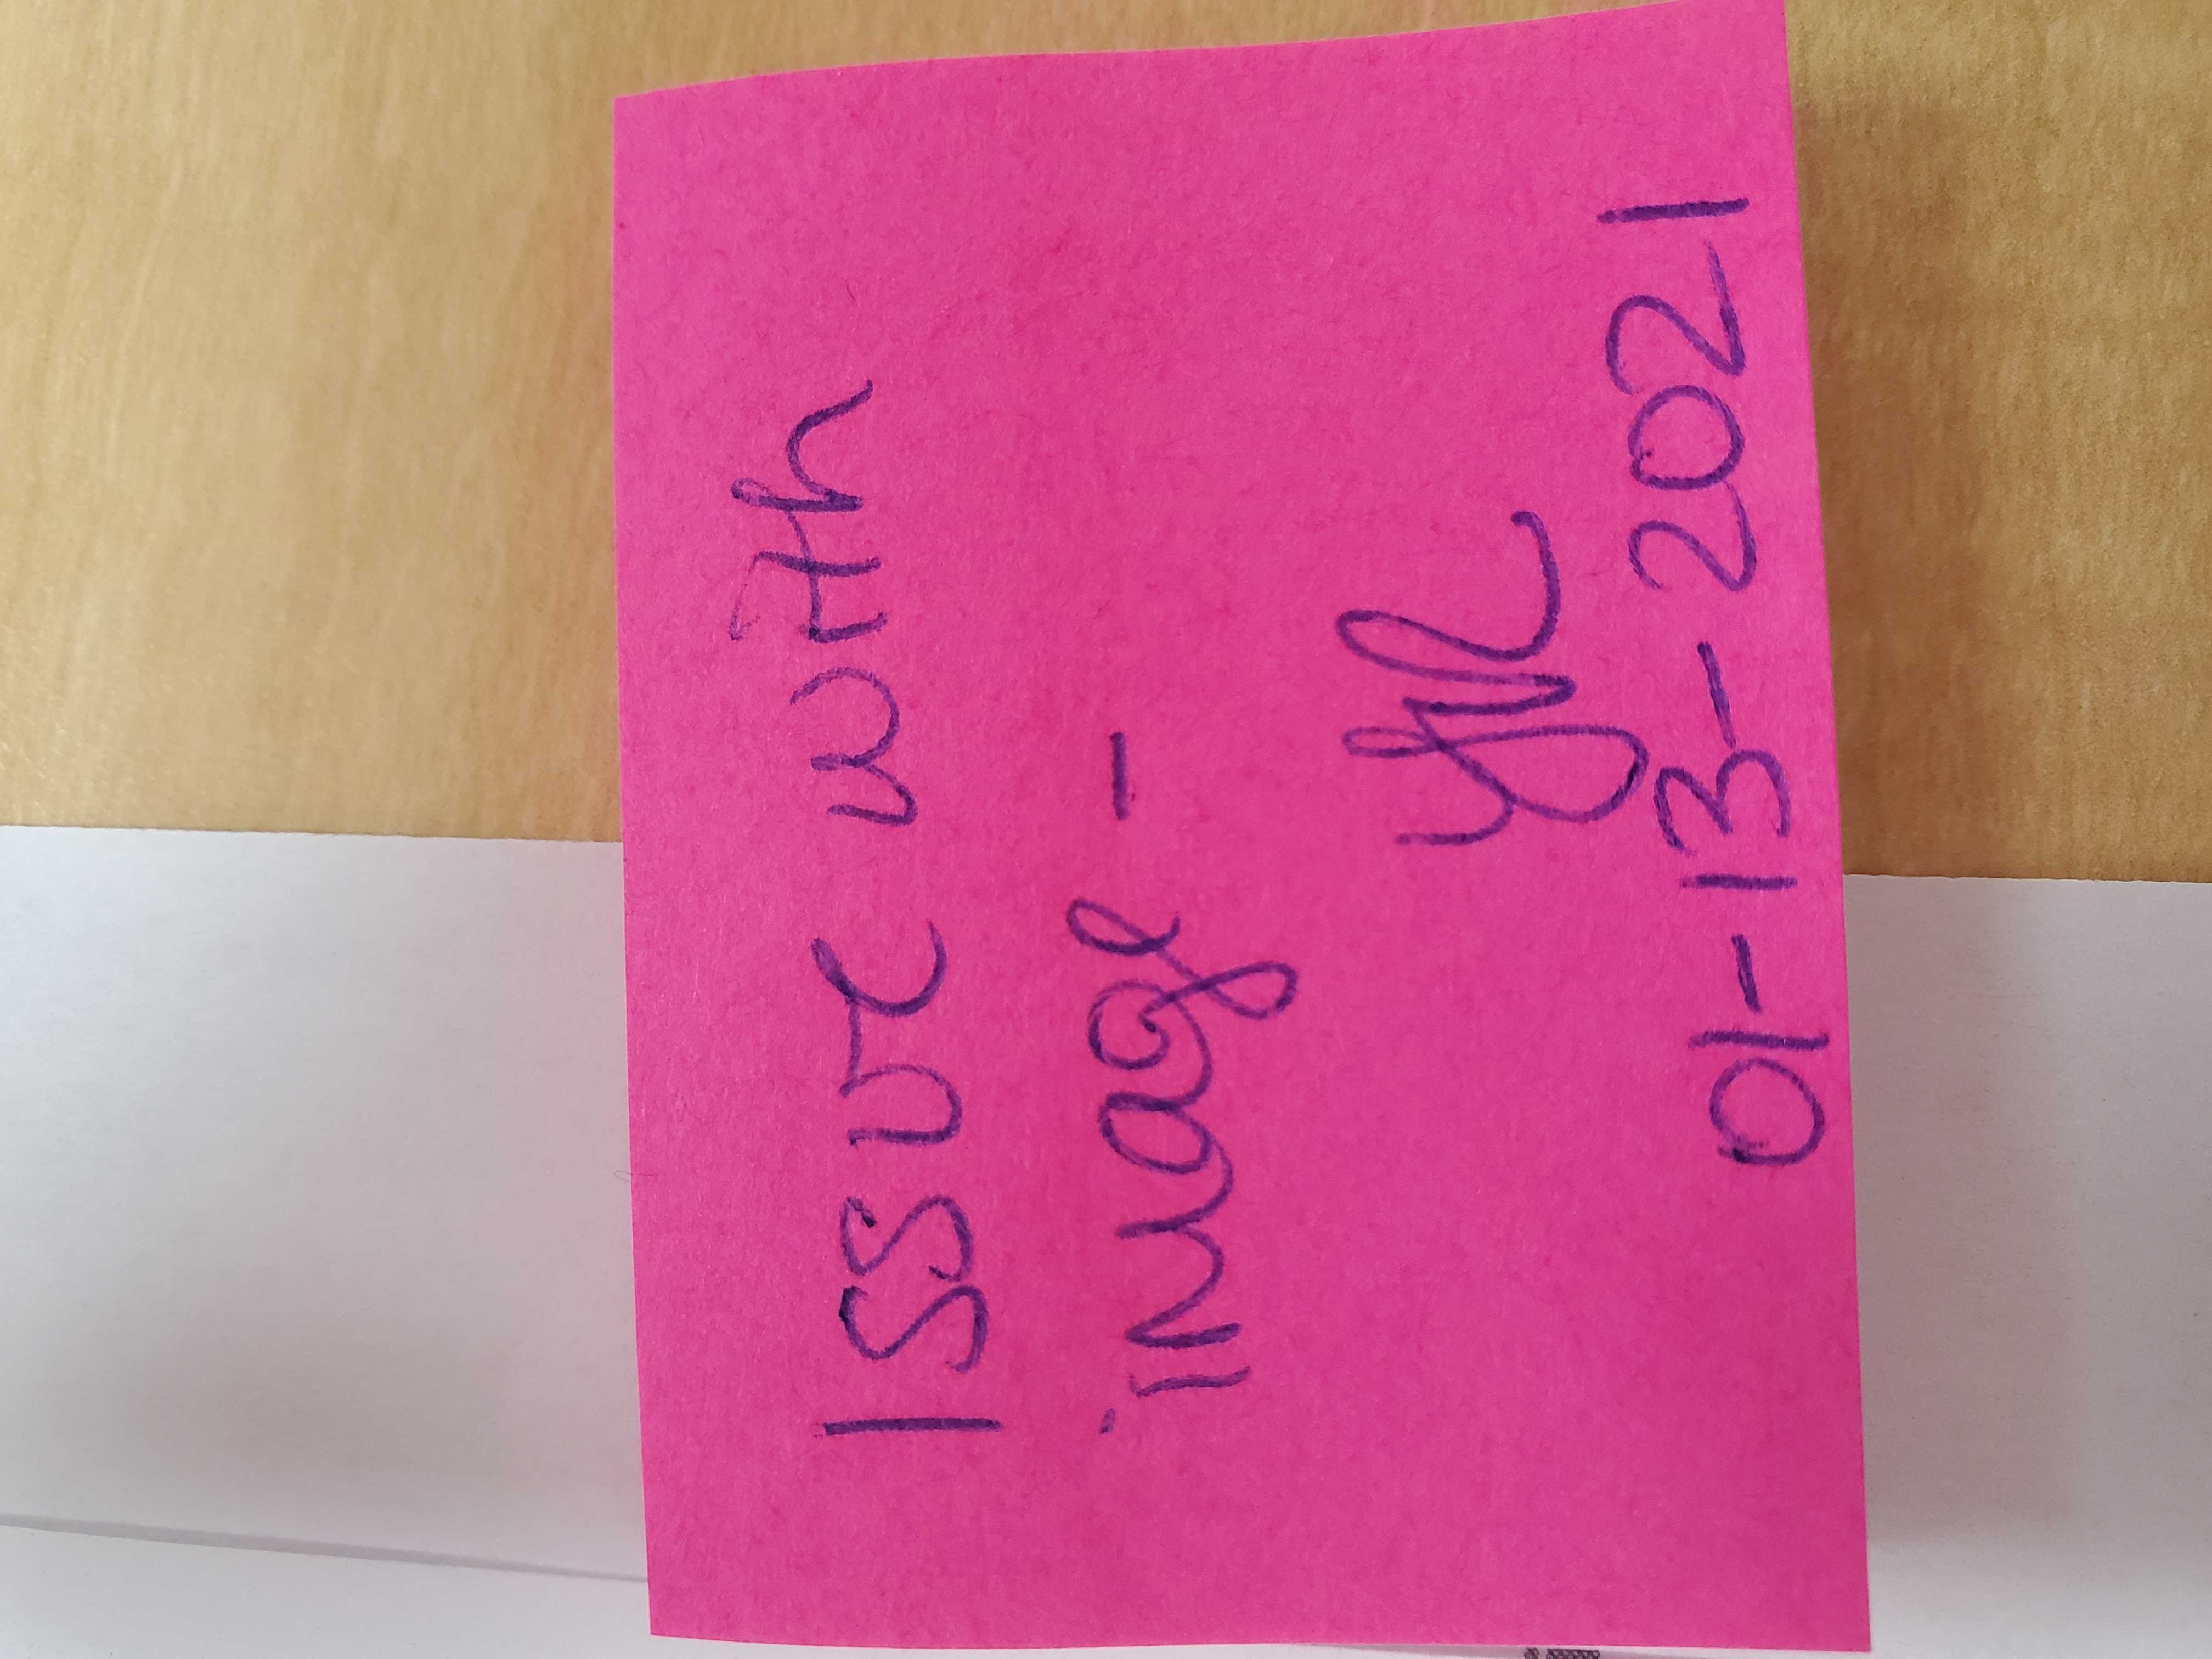 Issue with
image -
YR
01-13-2021